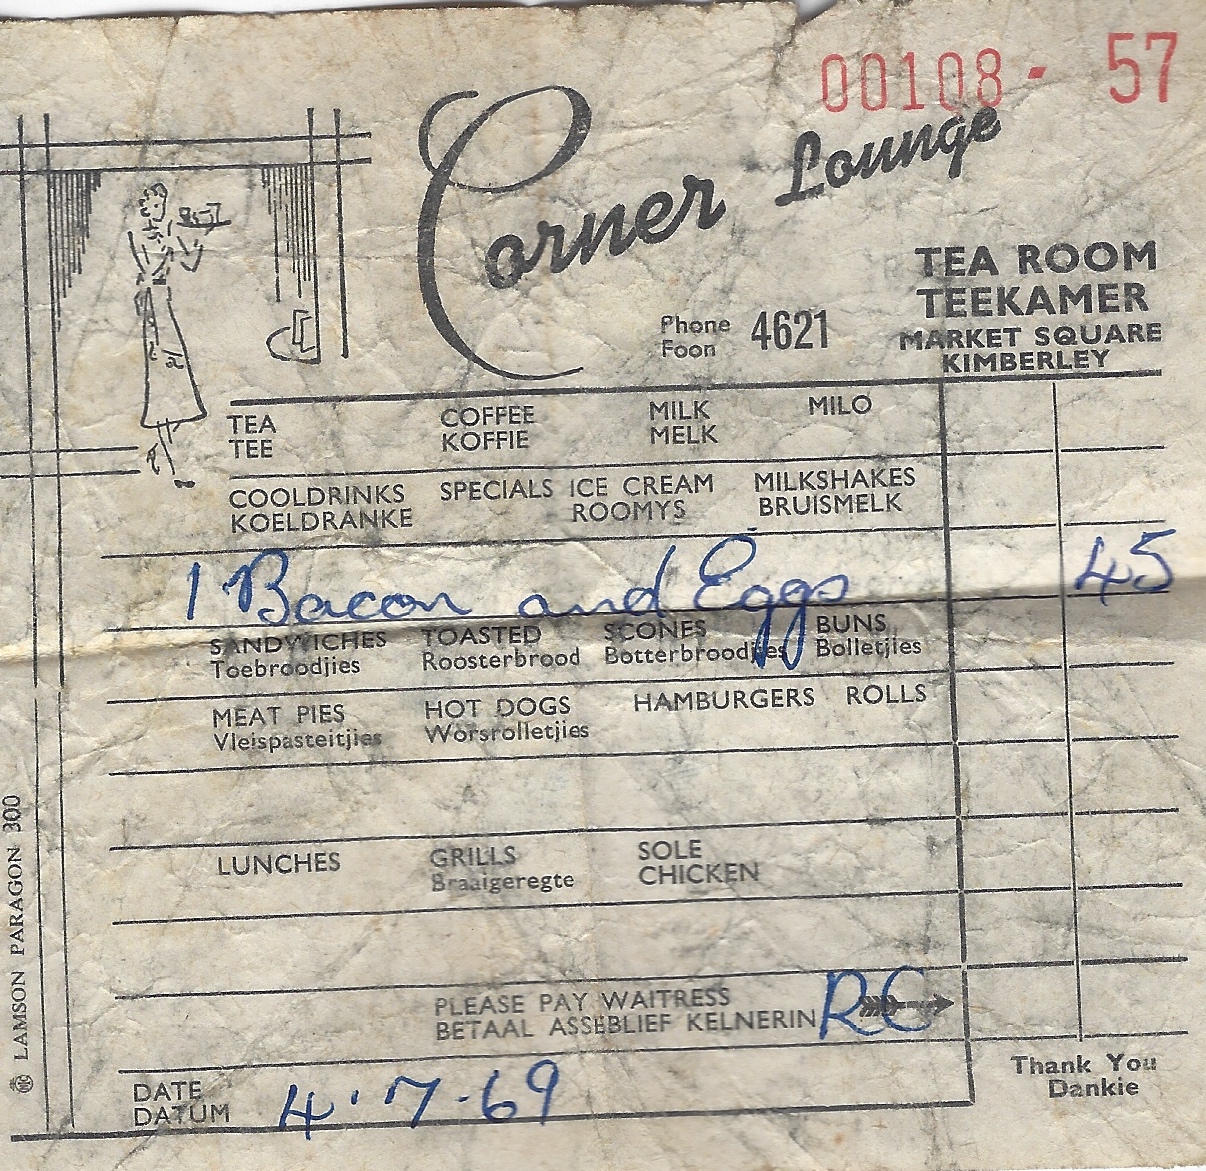 00108 - 57
Corner Lounge
TEA ROOM
TEEKAMER
MARKET SQUARE
KIMBERLEY
Phone 4621
Foon
TEA COFFEE MILK MILO
TEE KOFFIE MELK
COOLDRINKS SPECIALS ICE CREAM MILKSHAKES
KOELDRANKE ROOMYS BRUISMELK
1 Bacon and Eggs 45
SANDWICHES TOASTED SCONES BUNS
Toebroodjies Roosterbrood Botterbroodjies Bolletjies
MEAT PIES HOT DOGS HAMBURGERS ROLLS
Vleispasteitjies Worsrolletjies
LUNCHES GRILLS SOLE
Braaigeregte CHICKEN
PLEASE PAY WAITRESS
BETAAL ASSEBLIEF KELNERIN RC
Thank You
Dankie
DATE
DATUM 4.7.69
LAMSON PARAGON 300